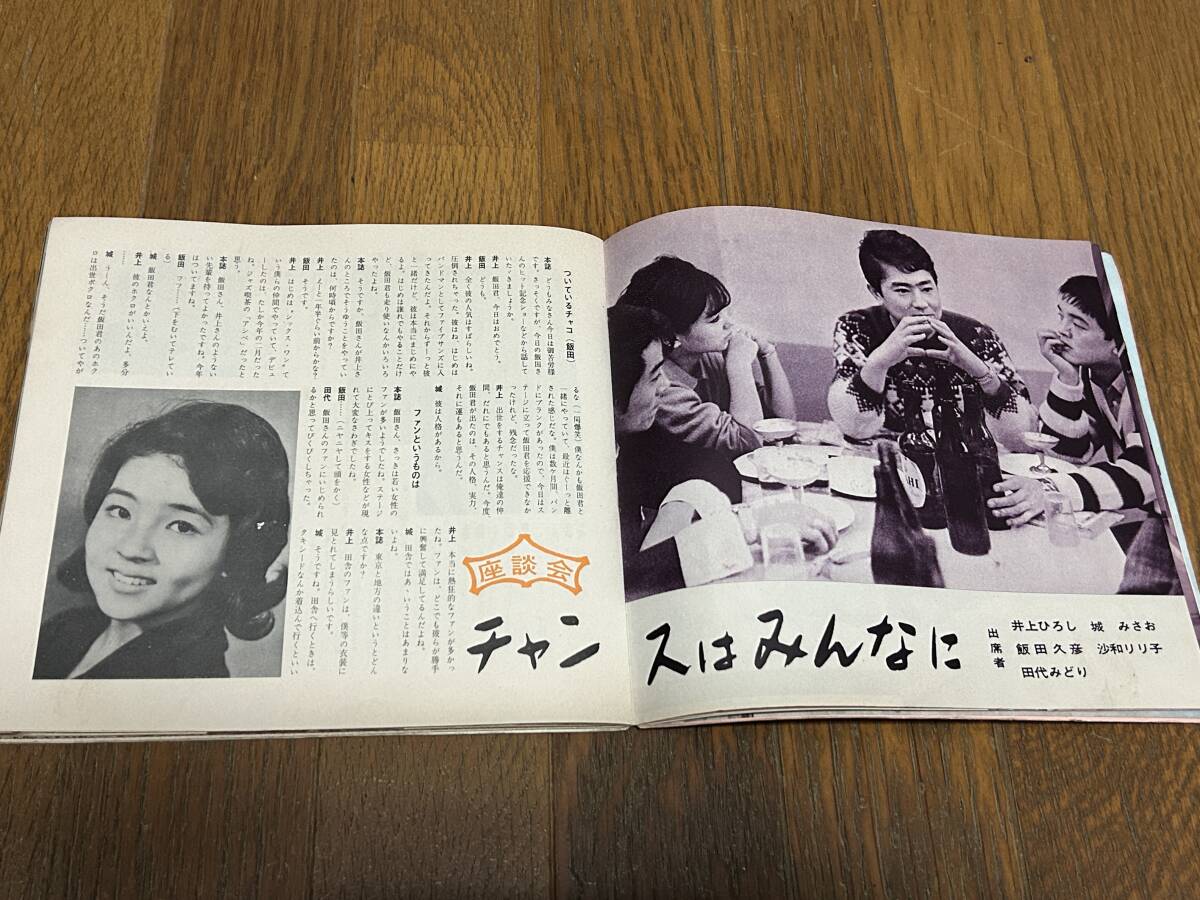 ついているチャコ（飯田）
本誌　どうもみなさん今日は御苦労様
です。さっそくですが、今日の飯田さ
んのヒット記念ショーなどから話して
いたゞきましょうか。
井上　飯田君、今日はおめでとう。
飯田　どうも。
井上　全く彼の人気はすばらしいね。
圧倒されちゃった。彼はね、はじめは
バンドマンとしてファイブサンズに入
ってきたんだよ。それからずーっと彼
と一緒だけど、彼は本当にまじめにや
るよ。はじめは誰れでもやることだけ
ど、飯田君も走り使いなんかいろいろ
やったよね。
本誌　そうですか、飯田さんが井上さ
んのところでそうゆうことをやってい
たのは、何時頃からですか？
井上　えーと一年半ぐらい前からかな？
飯田　そうです。
井上　はじめは〝シックス・ワン〟て
いう僕らの仲間でやっていて、デビュ
ーしたのは、たしか今年の二月だった
ね。ジャズ喫茶の「アシベ」だったと
思う。
本誌　飯田さん、井上さんのようない
い先輩を持ってよかったですね。今年
はついてますね。
飯田　フフ………（下をむいてテレてい
る）
城　飯田君なんとかいえよ。
井上　彼のホクロがいいんだよ、多分
……
城　うーん、そうだ飯田君のあのホク
ロは出世ボクロなんだ……ついてやが
るな（一同爆笑）僕なんかも飯田君と
一緒にやっていて、最近はぐーっと離
された感じだな。僕は数ケ月間、バン
ドにブランクがあったので、今日はス
テージに立って飯田君を応援できなか
ったけれど、残念だったな。
井上　出世をするチャンスは俺達の仲
間、だれにでもあると思うんだ。今度
飯田君が出たのは、その人格、実力、
それに運もあると思うんだ。
城　彼は人格があるから。
ファンというものは
本誌　飯田さん、さっきは若い女性の
ファンが多いようでしたね。ステージ
にとび上ってキスをする女性などが現
れて大変なさわぎでしたね。
飯田　……（ニヤニヤして頭をかく）
田代　飯田さんのファンにいじめられ
るかと思ってびくびくしちゃった。
井上　本当に熱狂的なファンが多かっ
たね。ファンは、どこでも彼らが勝手
に興奮して満足してるんだよね。
城　田舎ではあゝいうことはあまりな
いよね。
本誌　東京と地方の違いというとどん
な点ですか？
井上　田舎のファンは、僕等の衣装に
見とれてしまうらしいです。
城　そうですね。田舎へ行くときは、
タキシードなんか着込んで行くとい
座談会
チャンスはみんなに
出席者
井上ひろし　城　みさお
飯田久彦　沙和リリ子
田代みどり